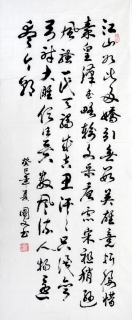 江山如此多娇引无数英雄竞折腰惜
秦皇汉武略输文采唐宗宋祖稍逊
风骚一代天骄成吉思汗只识弯
弓射大雕俱往矣数风流人物还
看今朝